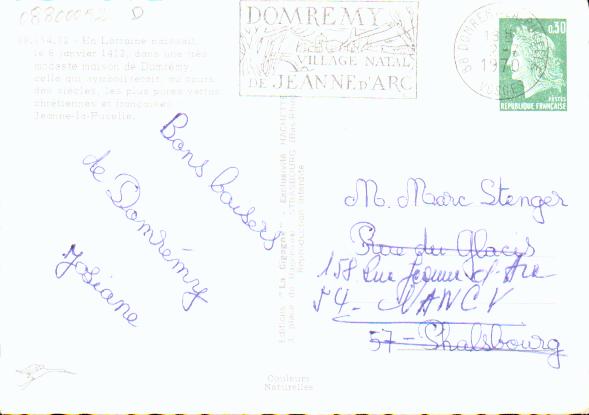 08800052 D
88.114.32 - En Lorraine naissait,
le 6 janvier 1412, dans une très
modeste maison de Domrémy,
celle qui symboliserait, au cours
des siècles, les plus pures vertus
chrétiennes et françaises
Jeanne-la-Pucelle.
DOMREMY
VILLAGE NATAL
DE JEANNE D'ARC
88 DOMREMY
1970
VOSGES
0,30
POSTES
REPUBLIQUE FRANÇAISE
Bons baisers
de Domrémy
Josiane
Editions "La Cigogne" - Exclusivité HACHETTE
STRASBOURG
Reproduction interdite
M. Marc Stenger
Rue du Glacis
158 Rue Jeanne d'Arc
54 - NANCY
57 - Phalsbourg
Couleurs
Naturelles